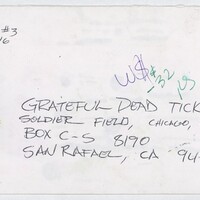 #3
16
W$#
-32
GRATEFUL DEAD TICK
SOLDIER FIELD, CHICAGO,
BOX C-S 8190
SAN RAFAEL, CA 94